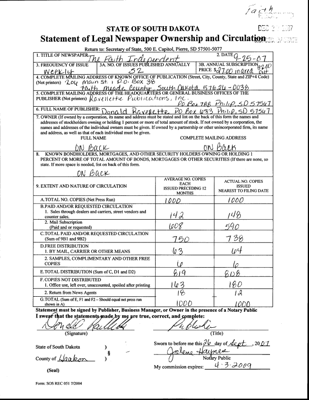 Faith
STATE OF SOUTH DAKOTA
Statement of Legal Newspaper Ownership and Circulation
Return to: Secretary of State, 500 E. Capitol, Pierre, SD 57501-5077
1. TITLE OF NEWSPAPER The Faith Independent
2. DATE 9-25-07
3. FREQUENCY OF ISSUE weekly
3A. NO. OF ISSUES PUBLISHED ANNUALLY 52
3B. ANNUAL SUBSCRIPTION PRICE
4. COMPLETE MAILING ADDRESS OF KNOWN OFFICE OF PUBLICATION (Street, City, County, State and ZIP+4 Code)
(Not printers) 204 Main St., P.O. Box 38
Faith Meade County South Dakota 57626-0038
5. COMPLETE MAILING ADDRESS OF THE HEADQUARTERS OR GENERAL BUSINESS OFFICES OF THE
PUBLISHER (Not printers) Ravellette Publications, Inc.
PO Box 788 Philip, SD 57567
6. FULL NAME OF PUBLISHER: Donald Ravellette, PO Box 633 Philip, SD 57567
7. OWNER (If owned by a corporation, its name and address must be stated and list on the back of this form the names and
addresses of stockholders owning or holding 1 percent or more of total amount of stock. If not owned by a corporation, the
names and addresses of the individual owners must be given. If owned by a partnership or other unincorporated firm, its name
and address, as well as that of each individual must be given.
FULL NAME COMPLETE MAILING ADDRESS
ON BACK ON BACK
8. KNOWN BONDHOLDERS, MORTGAGES, AND OTHER SECURITY HOLDERS OWNING OR HOLDING 1
PERCENT OR MORE OF TOTAL AMOUNT OF BONDS, MORTGAGES OR OTHER SECURITIES (If there are none, so
state. If more space is needed, list on back of this form.
ON BACK
9. EXTENT AND NATURE OF CIRCULATION
AVERAGE NO. COPIES EACH ISSUED PRECEDING 12 MONTHS
ACTUAL NO. COPIES ISSUED NEAREST TO FILING DATE
A.TOTAL NO. COPIES (Net Press Run) 1000 1000
B.PAID AND/OR REQUESTED CIRCULATION
1. Sales through dealers and carriers, street vendors and
counter sales. 142 148
2. Mail Subscription
(Paid and or requested) 608 590
C.TOTAL PAID AND/OR REQUESTED CIRCULATION
(Sum of 9B1 and 9B2) 750 738
D.FREE DISTRIBUTION
1. BY MAIL, CARRIER OR OTHER MEANS 63 64
2. SAMPLES, COMPLIMENTARY AND OTHER FREE
COPIES 6 6
E.TOTAL DISTRIBUTION (Sum of C, D1 and D2) 819 808
F.COPIES NOT DISTRIBUTED
1. Office use, left over, unaccounted, spoiled after printing 163 180
2. Return from News Agents 18 12
G.TOTAL (Sum of E, F1 and F2 - Should equal net press run
shown in A) 1000 1000
Statement must be signed by Publisher, Business Manager, or Owner in the presence of a Notary Public
I swear that the statements made by me are true, correct, and complete:
Donald Ravellette Publisher
(Signature) (Title)
State of South Dakota )
) §
County of Haakon )
Sworn to before me this 26 day of Sept, 2007
Jolene Haynes
Notary Public
(Seal)
My commission expires: 4-3-2009
Form: SOS REC 051 7/2004